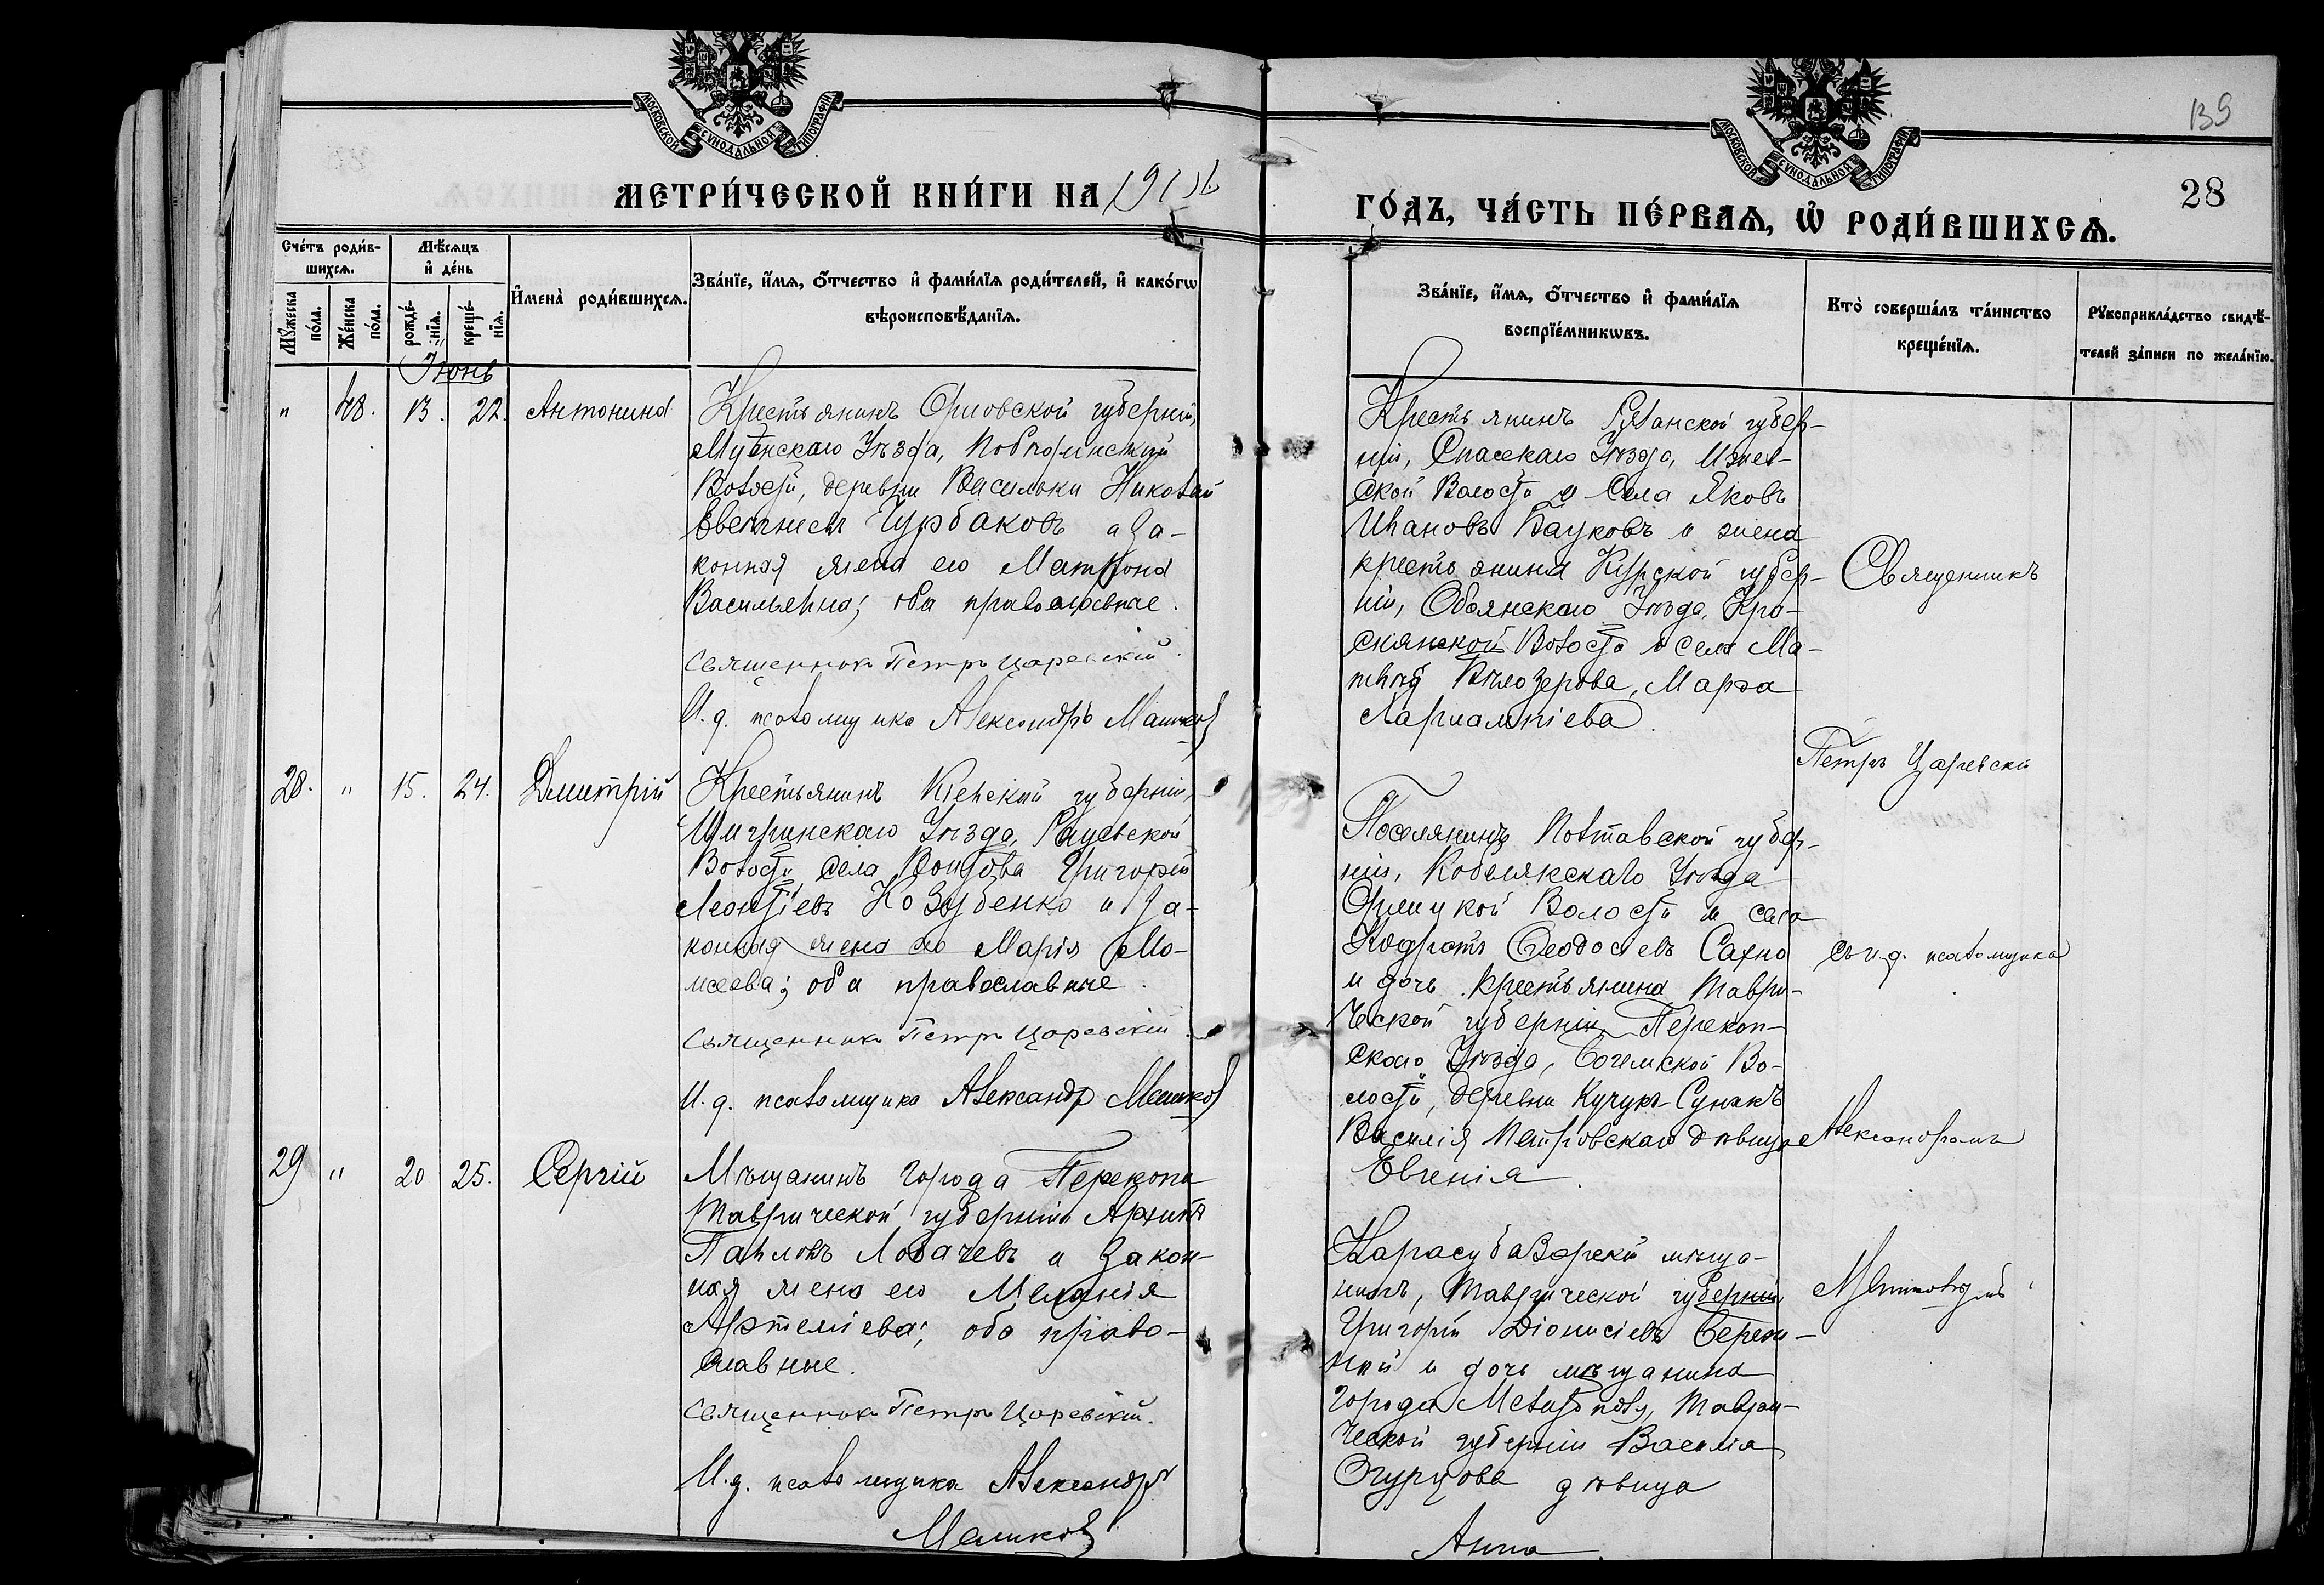 МОСКОВСКОЙ СѴНОДАЛЬНОЙ ТИПОГРАФІИ
МОСКОВСКОЙ СѴНОДАЛЬНОЙ ТИПОГРАФІИ
139
28
МЕТРИ́ЧЕСКОЙ КНИ́ГИ НА
ГО́ДЪ, ЧА́СТЬ ПЕ́РВАЯ, Ѡ РОДИ́ВШИХСЯ.
Сче́тъ роди́в-
шихся.
Мꙋжеска по́ла.
Же́нска по́ла.
Мѣ́сяцъ
и де́нь
рожде́-
нїя.
креще́-
нїя.
Имена̀ роди́вшихся.
Зва́нїе, и́мя, о́тчество и фами́лїя роди́телей, и како́гѡ
вѣроисповѣ́данїя.
Зва́нїе, и́мя, о́тчество и фами́лїя
воспрїе́мникѡвъ.
Кто̀ соверша́лъ та́инство
креще́нїя.
Рꙋкоприкла́дство свидѣ́-
телей за́писи по жела́нїю.
Іюнь
" 48. 13. 22. Антонина
Крестьянинъ Орловской губерніи,
Мценскаго Уѣзда,
Волости, деревни Васильки Николай
Чурбаковъ и за-
конная жена его Матрона
Васильевна; оба православные.
Священникъ Петръ Царевскій.
И. д. псаломщика Александръ Машков
Крестьянинъ Рязанской губер-
ніи, Спасскаго Уѣзда, Ижев-
ской Волости и села Яковъ
Ивановъ Бауковъ и жена
крестьянина Курской губер-
ніи, Обоянскаго Уѣзда, Кра-
снянской Волости и села Ма-
твѣя Бѣлозерова, Марѳа
Харлампіева.
Священникъ
Петръ Царевскій
28. " 15. 24. Дмитрій
Крестьянинъ Кіевской губерніи,
Чигринскаго Уѣзда,
Волости села Григорій
Леонтіевъ Козубенко и за-
конная жена его Марія Мо-
исеева; оба православные.
Священникъ Петръ Царевскій.
И. д. псаломщика Александр Машков
Поселянинъ Полтавской губер-
ніи, Кобелякскаго Уѣзда
Орлицкой Волости и села
Кодратъ Ѳеодосіевъ Сахно
и дочь крестьянина Таври-
ческой губерніи, Перекоп-
скаго Уѣзда, Богемской Во-
лости, деревни Кучукъ-Сунакъ
Василія Петровскаго дѣвица
Евгенія.
съ и. д. псаломщика
Александромъ
29 " 20 25. Сергій
Мѣщанинъ города Перекопа
Таврической губерніи Архипъ
Павловъ Лобачевъ и закон-
ная жена его Меланія
Артеміева; оба право-
славные.
Священникъ Петръ Царевскій.
И. д. псаломщика Александръ
Машков
Карасубазарскій мѣща-
нинъ, Таврической губерніи
Григорій Діонисіевъ
и дочь мѣщанина
города Мелитополя, Таври-
ческой губерніи Василія
Огурцова дѣвица
Анна.
Машковымъ